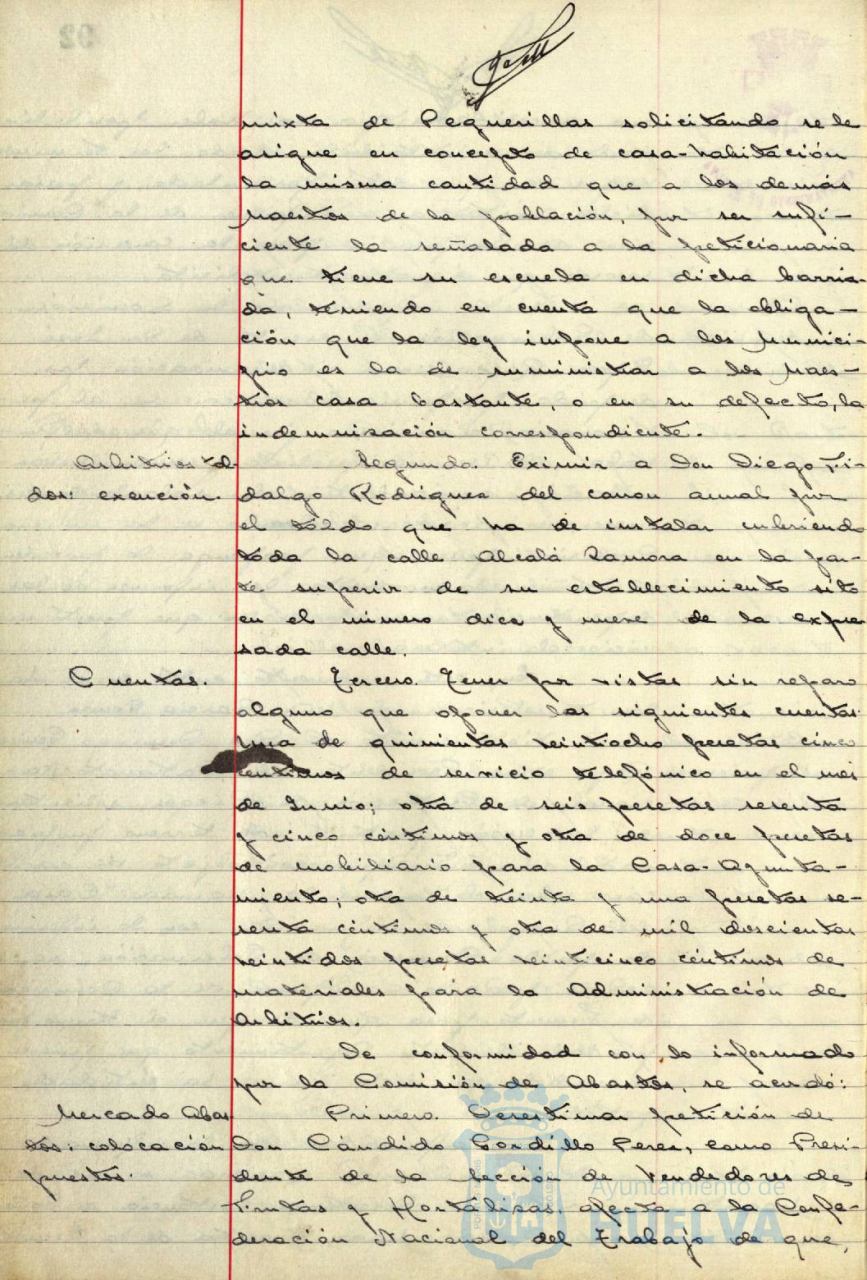 mixta de Peguerillas solicitando se le
asigne en concepto de casa-habitación
la misma cantidad que a los demás
Maestros de la población, por ser sufi-
ciente la señalada a la peticionaria
que tiene su escuela en dicha barria-
da, teniendo en cuenta que la obliga-
ción que la ley impone a los Munici-
pio es la de suministrar a los Maes-
tros casa bastante, o en su defecto, la
indemnización correspondiente.
Arbitrios tol-
dos: exención.
Segundo. Eximir a Don Diego Fi-
dalgo Rodríguez del canon anual por
el toldo que ha de instalar cubriendo
toda la calle Alcalá Zamora en la par-
te superior de su establecimiento sito
en el número diez y nueve de la expre
sada calle.
Cuentas.
Tercero. Tener por vistas sin reparo
alguno que oponer las siguientes cuentas:
una de quinientas veintiocho pesetas cinco
centimos de servicio telefónico en el mes
de Junio; otra de seis pesetas sesenta
y cinco céntimos y otra de doce pesetas
de mobiliario para la Casa-Ayunta-
miento; otra de treinta y una pesetas se-
senta céntimos y otra de mil doscientas
veintidos pesetas veinticinco céntimos de
materiales para la Administración de
Arbitrios.
De conformidad con lo informado
por la Comisión de Abastos, se acordó:
Mercado Abas-
tos: colocación
puestos.
Primero. Desestimar petición de
Don Cándido Gordillo Peres, como Presi-
dente de la Sección de Vendedores de
Frutas y Hortalizas, afecta a la Confe-
deración Nacional del Trabajo de que,
Ayuntamiento de
HUELVA